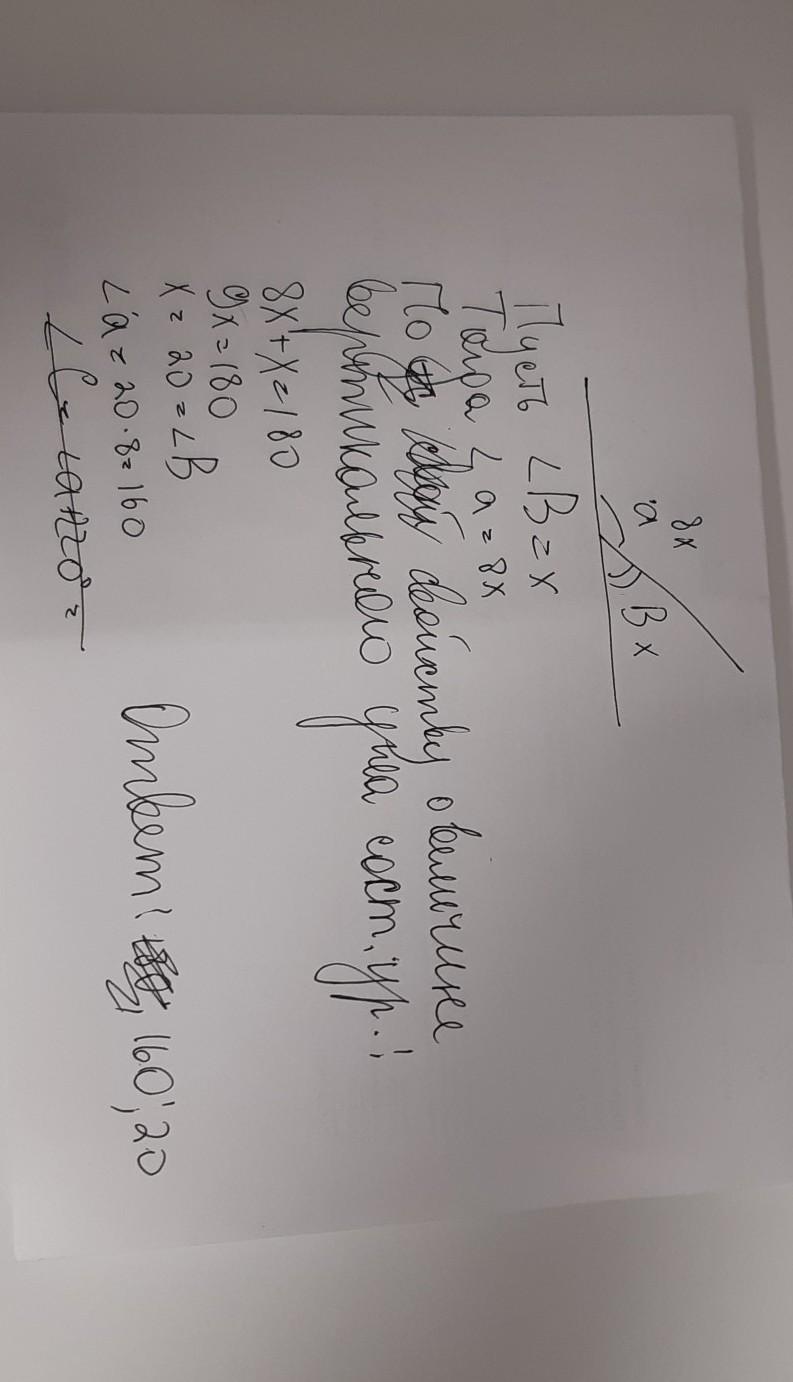 8x
a
B x
Пусть ∠B = x
Тогда ∠a = 8x
По свойству о величине
вертикального угла сост. ур.:
8x + x = 180
9x = 180
x = 20 = ∠B
∠a = 20 · 8 = 160
∠C = ∠a+20° =
Ответ: 160; 20